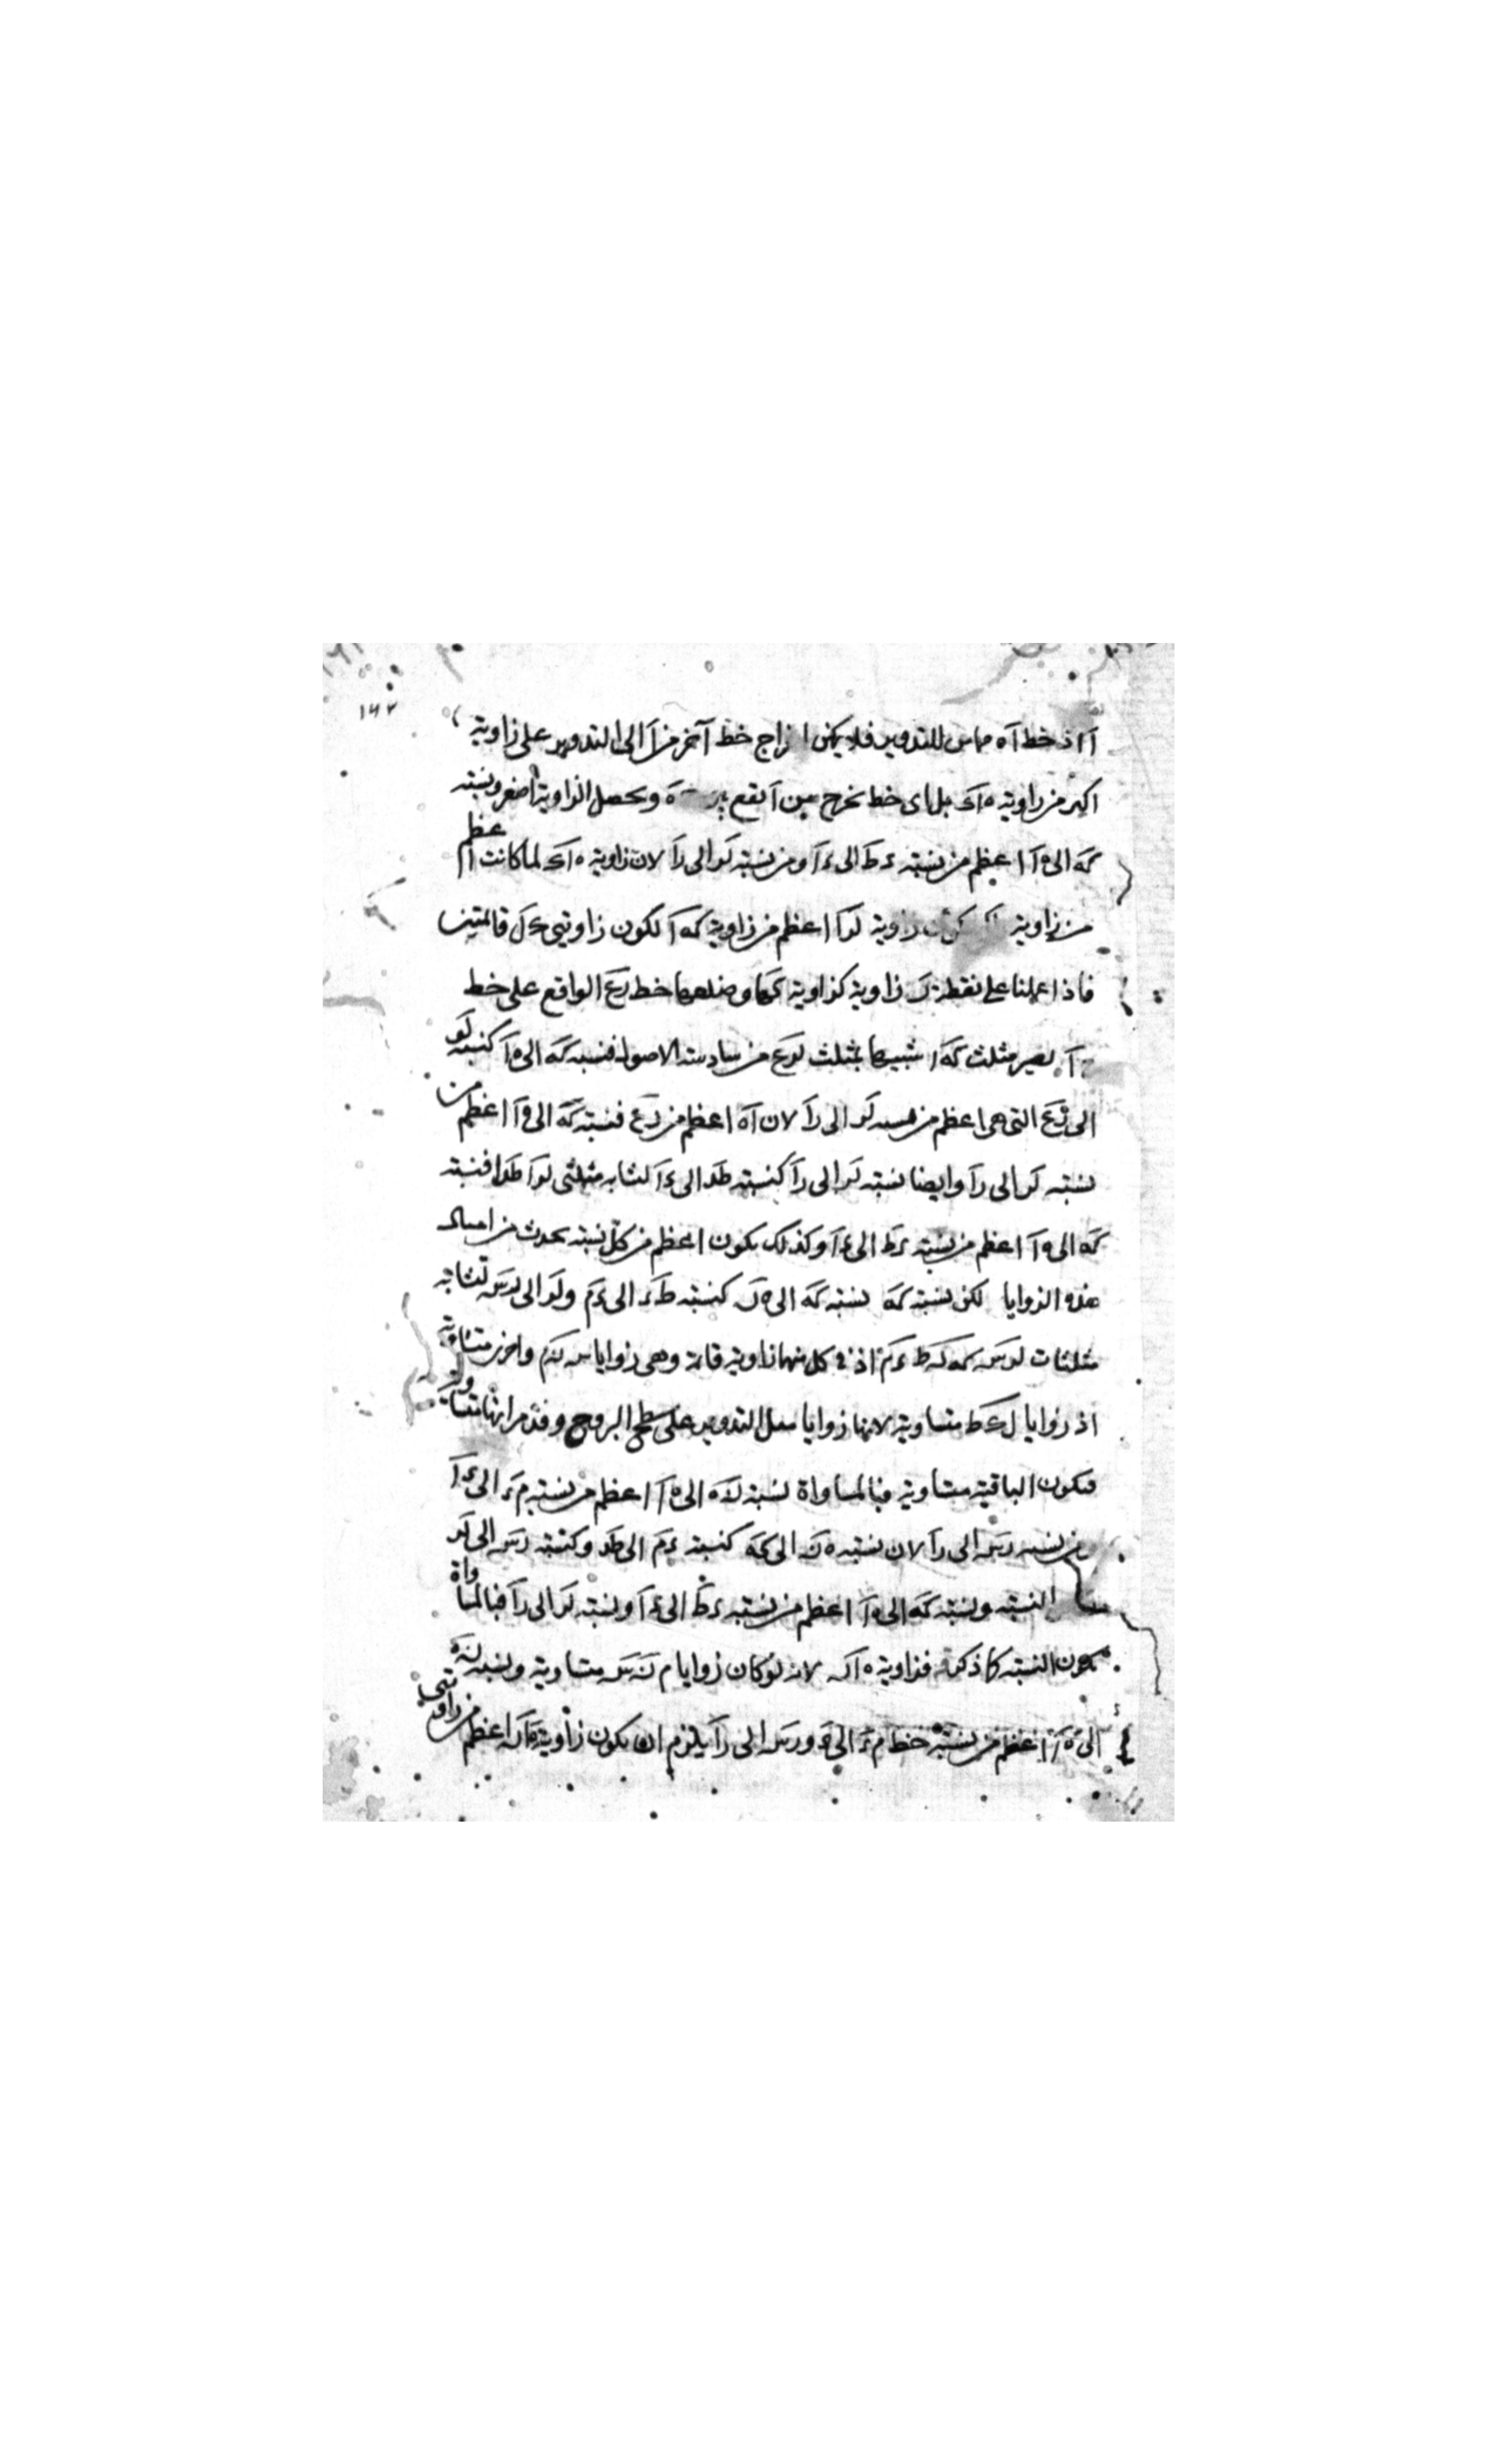 ١٤٢
آ اذ خط آه مماس للتدوير فلا يمكن اخراج خط آخر من آ الى التدوير على زاوية
اكبر من زاوية ه اك بل اى خط يخرج من آ يقع ه ويحصل الزاوية اصغر ونسبة
كه الى ه آ اعظم من نسبة ء ط الى ء آ ومن نسبة لر الى ر آ لان زاوية ه اك لما كانت اعظم
من زاوية زاوية لر آ اعظم من زاوية كه آ لكون زاويتى ك ل قائمتين
فاذا عملنا على نقطة ر زاوية كزاوية كه آ وضلعها خط رع الواقع على خط
آ يصير مثلث كه ا شبيها بمثلث لرع من سادسة الاصول فنسبة كه الى ه آ كنسبة لر
الى رع التى هى اعظم من نسبة لر الى ر آ لان آه اعظم من رع فنسبة كه الى ه آ اعظم من
نسبة لر الى ر آ وايضا نسبة لر الى ر آ كنسبة طد الى ء آ لتشابه مثلثى لر آ طد ا فنسبة
كه الى ه آ اعظم من نسبة ء ط الى ء آ وكذلك يكون اعظم من كل نسبة يحدث من امثال
هذه الزوايا لكن نسبة كه نسبة كه الى ه ن كنسبة ط ء الى ء م ولر الى رس لتشابه
مثلثات لرس كه ن ط ء م اذ فى كل منها زاوية قائمة وهى زوايا س ن م واخر متساوية
اذ زوايا ل ك ط متساوية لانها زوايا ميل التدوير على سطح البروج وقد مر انها متساوية
فيكون الباقية متساوية فبالمساواة نسبة ن ه الى ه آ اعظم من نسبة م ء الى ء آ
من نسبة رس الى ر آ لان نسبة ه ن الى كه كنسبة ء م الى طد وكنسبة رس الى لر
النسبة ونسبة كه الى ه آ اعظم من نسبة ء ط الى ء آ ونسبة لر الى ر آ فبالمساواة
يكون النسبة كما ذكر فزاوية ه ا ن لانه لو كان زوايا م ن س متساوية ونسبة ن ه
الى ه آ اعظم من نسبة خط م ء الى ء ورس الى ر آ يلزم ان يكون زاوية ه ا ن اعظم من زاويتى